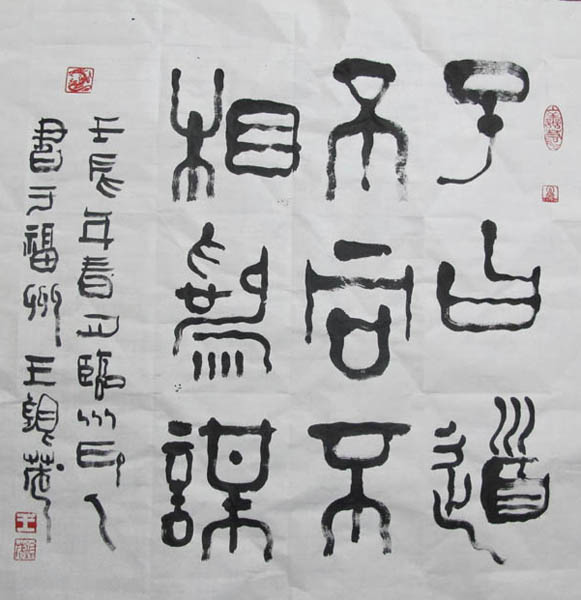 子曰道
不同不
相為謀
壬辰年春臨川印人
書于福州王